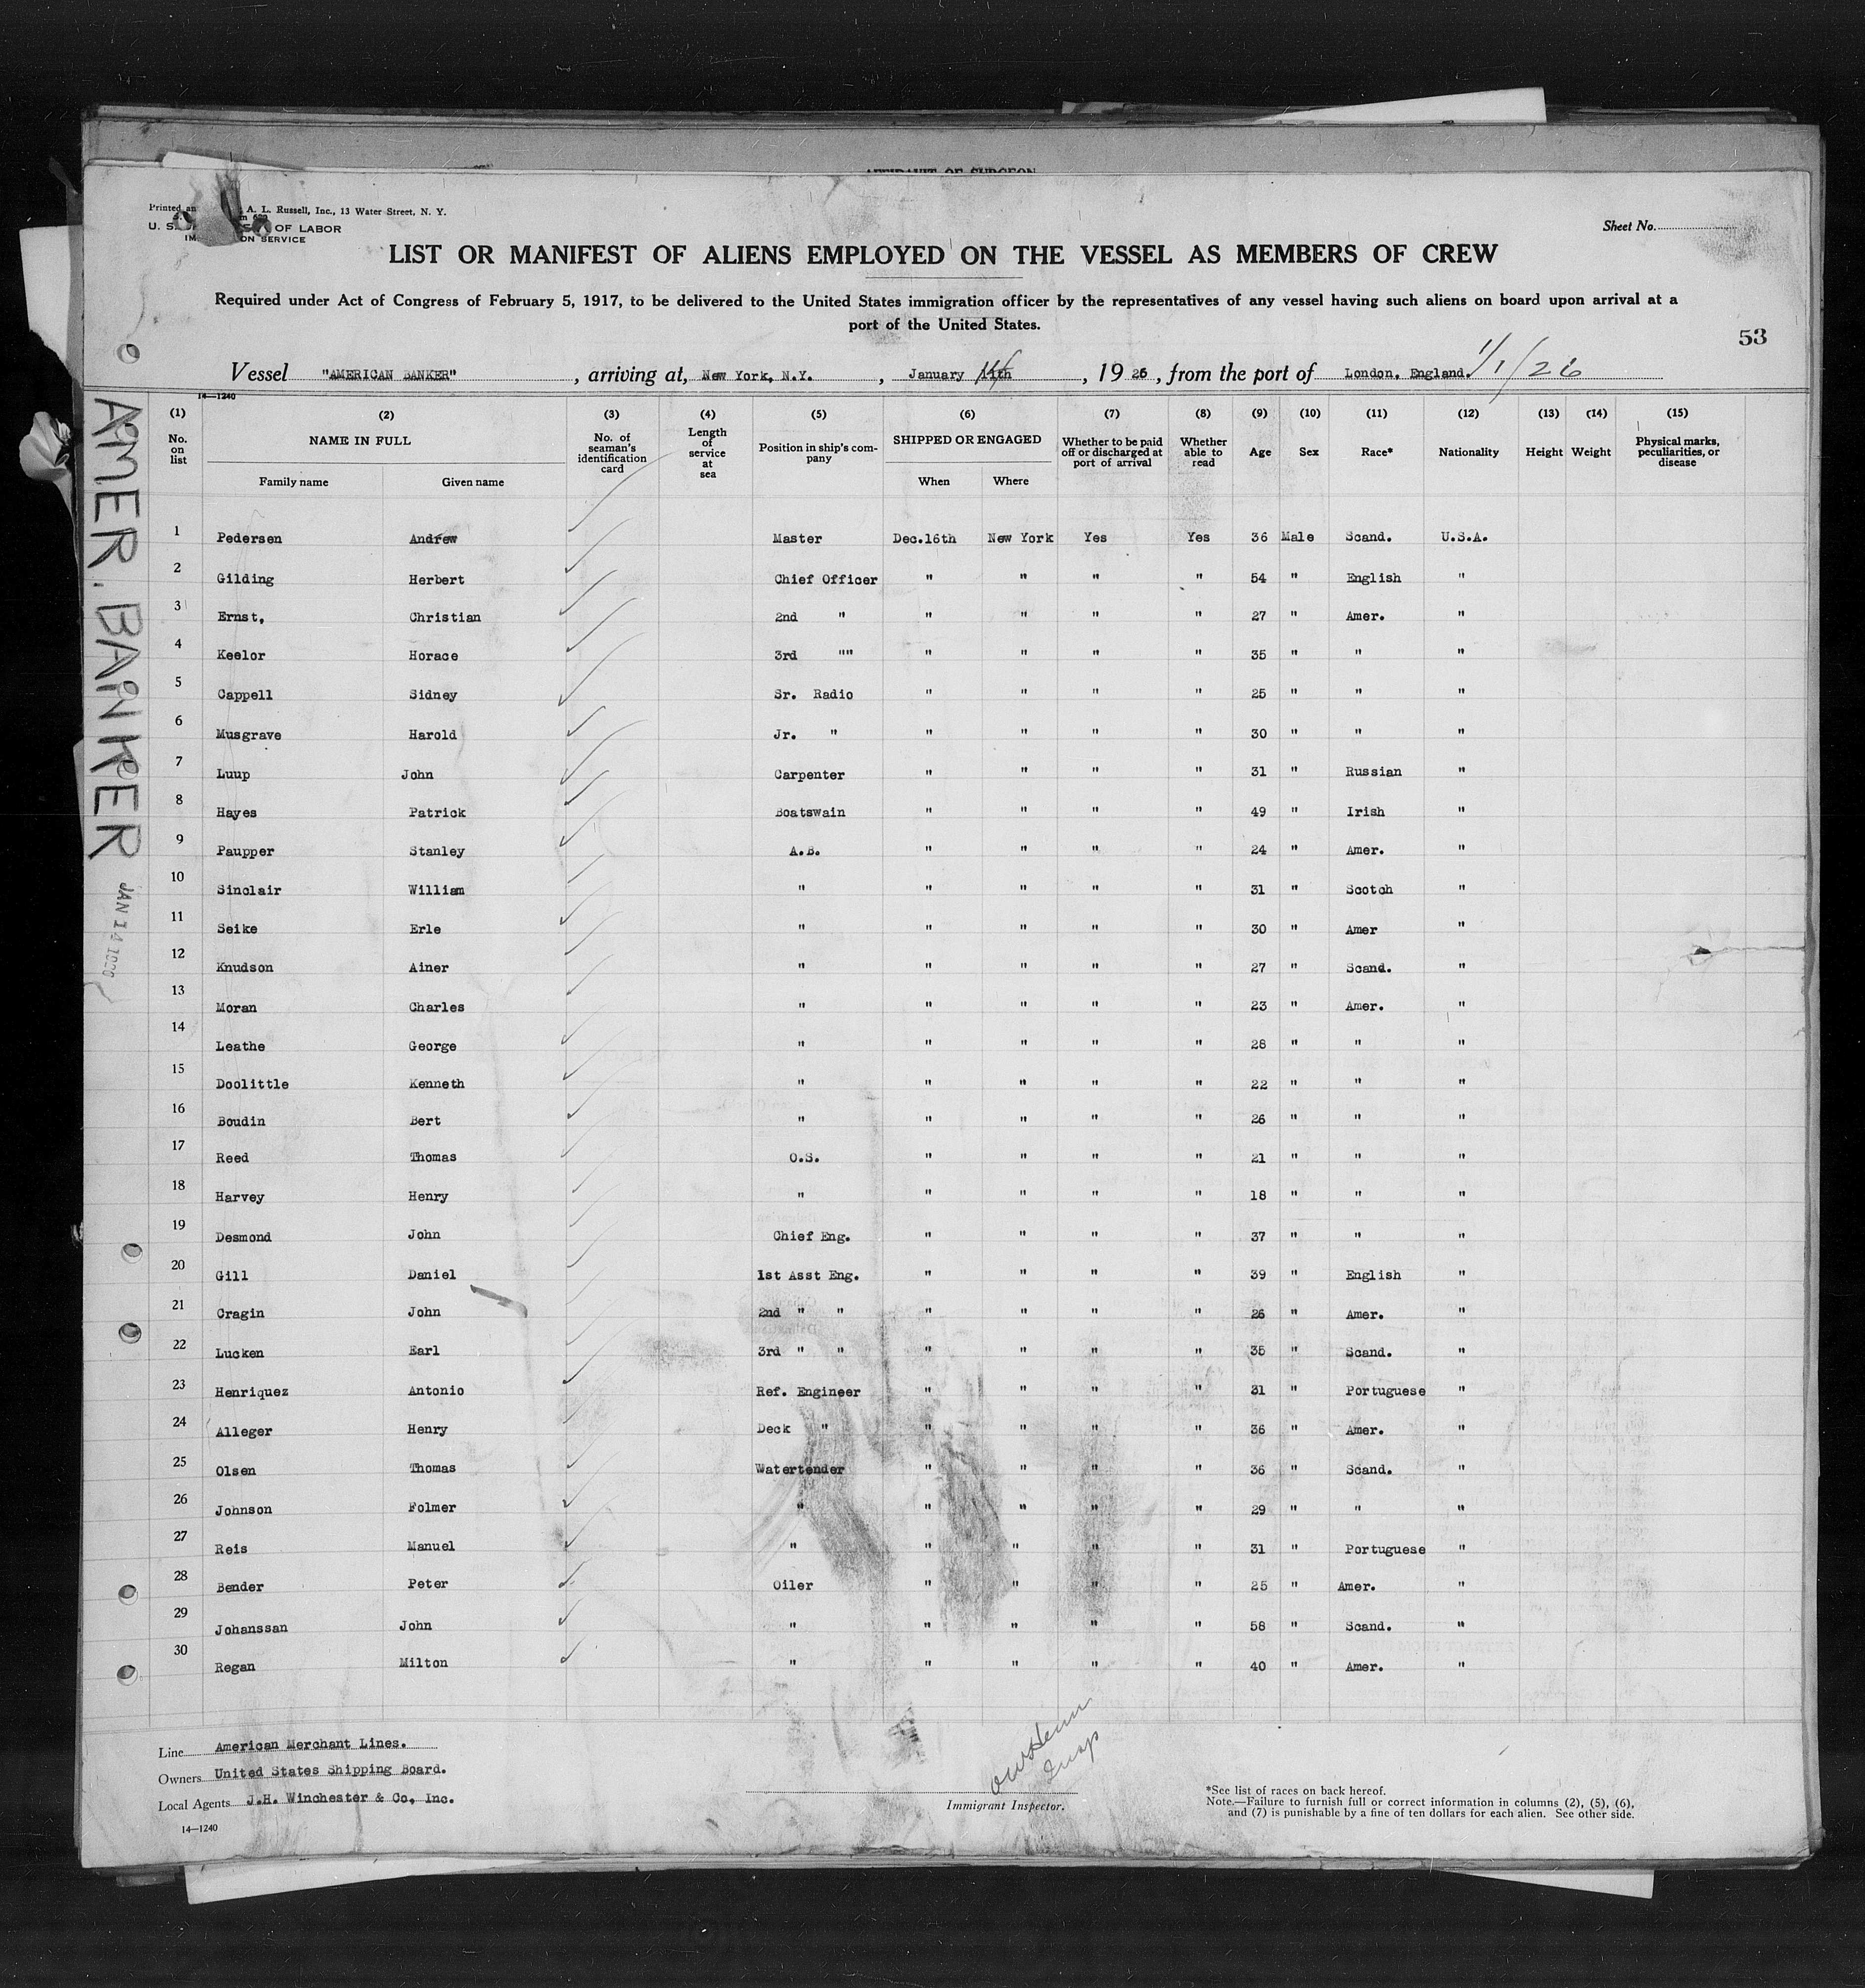 AFFIDAVIT OF SURGEON
Printed an A. L. Russell, Inc., 13 Water Street, N. Y.
U. S. OF LABOR
SERVICE
Sheet No.
LIST OR MANIFEST OF ALIENS EMPLOYED ON THE VESSEL AS MEMBERS OF CREW
Required under Act of Congress of February 5, 1917, to be delivered to the United States immigration officer by the representatives of any vessel having such aliens on board upon arrival at a
port of the United States.
53
Vessel "AMERICAN BANKER", arriving at, New York, N.Y., January 14th, 1926, from the port of London, England. 1/1/26
14—1240
(1) (2) (3) (4) (5) (6) (7) (8) (9) (10) (11) (12) (13) (14) (15)
No. on list NAME IN FULL Family name Given name No. of seaman's identification card Length of service at sea Position in ship's company SHIPPED OR ENGAGED When Where Whether to be paid off or discharged at port of arrival Whether able to read Age Sex Race* Nationality Height Weight Physical marks, peculiarities, or disease
1 Pedersen Andrew Master Dec.16th New York Yes Yes 36 Male Scand. U.S.A.
2 Gilding Herbert Chief Officer " " " " 54 " English "
3 Ernst, Christian 2nd " " " " " 27 " Amer. "
4 Keelor Horace 3rd "" " " " " 35 " " "
5 Cappell Sidney Sr. Radio " " " " 25 " " "
6 Musgrave Harold Jr. " " " " " 30 " " "
7 Luup John Carpenter " " " " 31 " Russian "
8 Hayes Patrick Boatswain " " " " 49 " Irish "
9 Paupper Stanley A.B. " " " " 24 " Amer. "
10 Sinclair William " " " " " 31 " Scotch "
11 Seike Erle " " " " " 30 " Amer "
12 Knudson Ainer " " " " " 27 " Scand. "
13 Moran Charles " " " " " 23 " Amer. "
14 Leathe George " " " " " 28 " " "
15 Doolittle Kenneth " " " " " 22 " " "
16 Boudin Bert " " " " " 26 " " "
17 Reed Thomas O.S. " " " " 21 " " "
18 Harvey Henry " " " " " 18 " " "
19 Desmond John Chief Eng. " " " " 37 " " "
20 Gill Daniel 1st Asst Eng. " " " " 39 " English "
21 Cragin John 2nd " " " " " " 26 " Amer. "
22 Lucken Earl 3rd " " " " " " 35 " Scand. "
23 Henriquez Antonio Ref. Engineer " " " " 31 " Portuguese "
24 Alleger Henry Deck " " " " " 36 " Amer. "
25 Olsen Thomas Watertender " " " " 36 " Scand. "
26 Johnson Folmer " " " " " 29 " " "
27 Reis Manuel " " " " " 31 " Portuguese "
28 Bender Peter Oiler " " " " 25 " Amer. "
29 Johanssan John " " " " " 58 " Scand. "
30 Regan Milton " " " " " 40 " Amer. "
AMER. BANKER
JAN 14
Line American Merchant Lines.
Owners United States Shipping Board.
Local Agents J.H. Winchester & Co, Inc.
14—1240
Insp
Immigrant Inspector.
*See list of races on back hereof.
Note.—Failure to furnish full or correct information in columns (2), (5), (6),
and (7) is punishable by a fine of ten dollars for each alien. See other side.